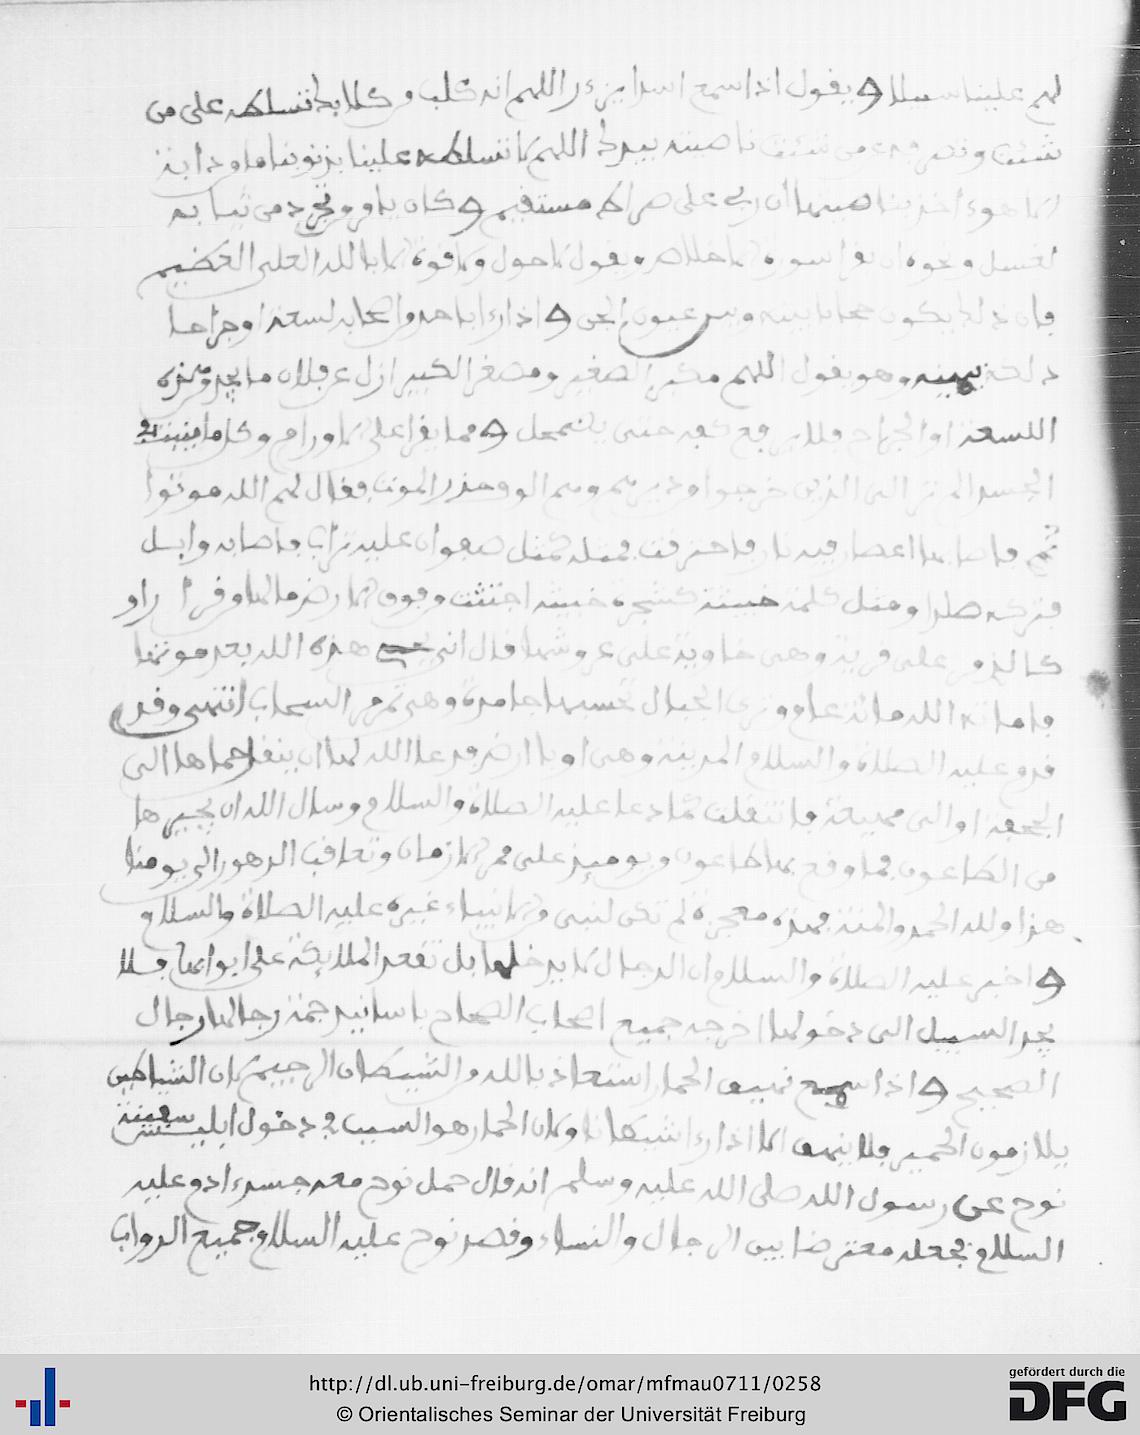 لهم علينا سبيلا ويقول اذا سمع اسدا يزءر اللهم انه كلب من كلابك تسلطه على من
شئت وتصرفه عن من شئت ناصيته بيدك اللهم لا تسلطه علينا بذنوبنا ما من دابة
الا هو ءاخذ بناصيتها ان ربي على صراط مستقيم وكان يامر من تجرد من ثيابه
لغسل ونحوه ان يقرا سورة الاخلاص ويقول لا حول ولا قوة الا بالله العلي العظيم
فان ذلك يكون حجابا بينه وبين عيون الجن واذا رءا باحد واصحابه لسعة او جراحا
دلكه بيمينه وهو يقول اللهم مكبر الصغير ومصغر الكبير ازل عن فلان ما يجد من هذه
اللسعة او الجراح فلا يرفع كفه حتى يضمحل ومما يقرا على الاورام وكل ما ينبت في
الجسد الم تر الى الذين خرجوا من ديرهم وهم الوف حذر الموت فقال لهم الله موتوا
ثم فاصابها اعصار فيه نار فاحترقت فمثله كمثل صفوان عليه تراب فاصابه وابل
فتركه صلدا ومثل كلمة خبيثة كشجرة خبيثة اجتثت من فوق الارض ما لها من قرار او
كالذي مر على قرية وهي خاوية على عروشها قال انى يحيي هذه الله بعد موتها
فاماته الله مائة عام وترى الجبال تحسبها جامدة وهي تمر مر السحاب انتهى وقد
قدم عليه الصلاة والسلام المدينة وهي اوبا ارض فدعا الله لها ان ينقل حماها الى
الجحفة او الى مهيعة فانتقلت كما دعا عليه الصلاة والسلام وسال الله ان يجيرها
من الطاعون فما وقع بها طاعون من يوميذ على ممر الازمان وتعاقب الدهور الى يومنا
هذا ولله الحمد والمنة فهذه معجزة لم تكن لنبي من الانبياء غيره عليه الصلاة والسلام
واخبر عليه الصلاة والسلام ان الدجال لا يدخلها بل تقعد الملايكة على ابوابها فلا
يجد السبيل الى دخولها اخرجه جميع اصحاب الصحاح باسانيد جمة رجالها رجال
الصحيح واذا سمع نهيق الحمار استعاذ بالله من الشيطان الرجيم لان الشياطين
يلازمون الحمير فلا ينهق الا اذا رءا شيطانا وكان الحمار هو السبب في دخول ابليس سفينة
نوح عن رسول الله صلى الله عليه وسلم انه قال حمل نوح معه جسد ءادم عليه
السلام فجعله معترضا بين الرجال والنساء وقصد نوح عليه السلام جميع الدواب
http://dl.ub.uni-freiburg.de/omar/mfmau0711/0258
© Orientalisches Seminar der Universität Freiburg
gefördert durch die
DFG